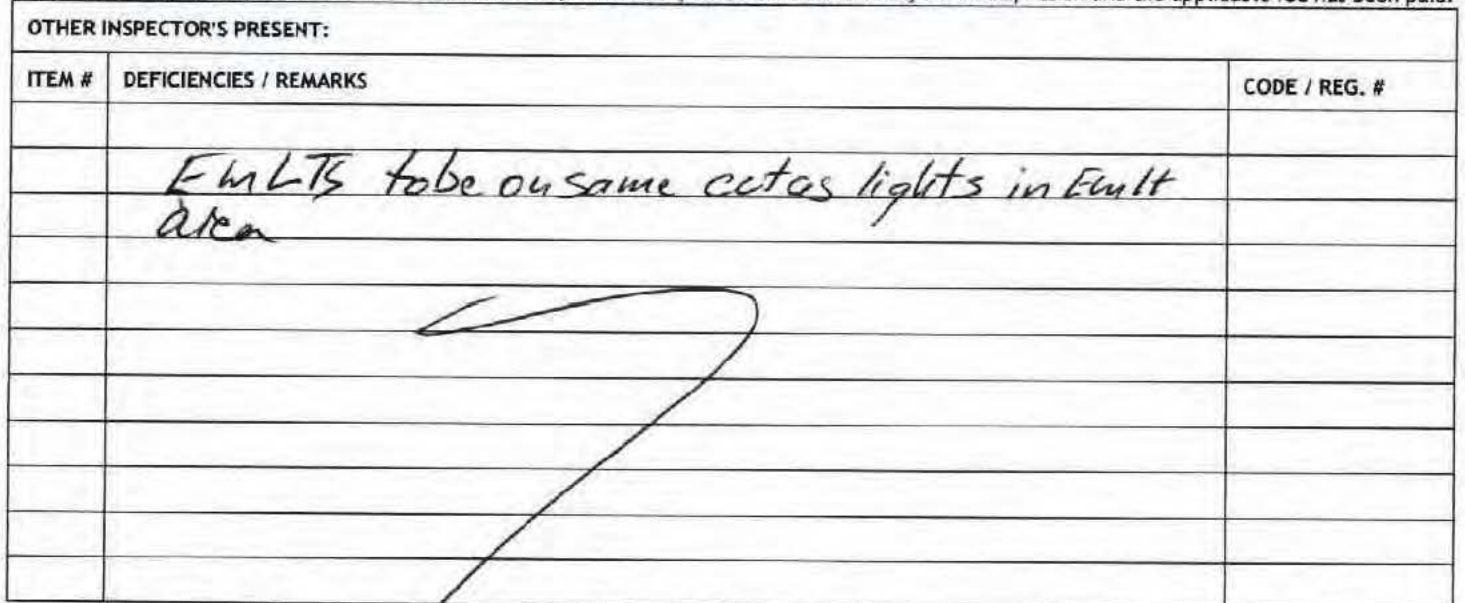 OTHER INSPECTOR'S PRESENT:
ITEM # DEFICIENCIES / REMARKS CODE / REG. #
EmLTS to be on same cct as lights in Emlt
area